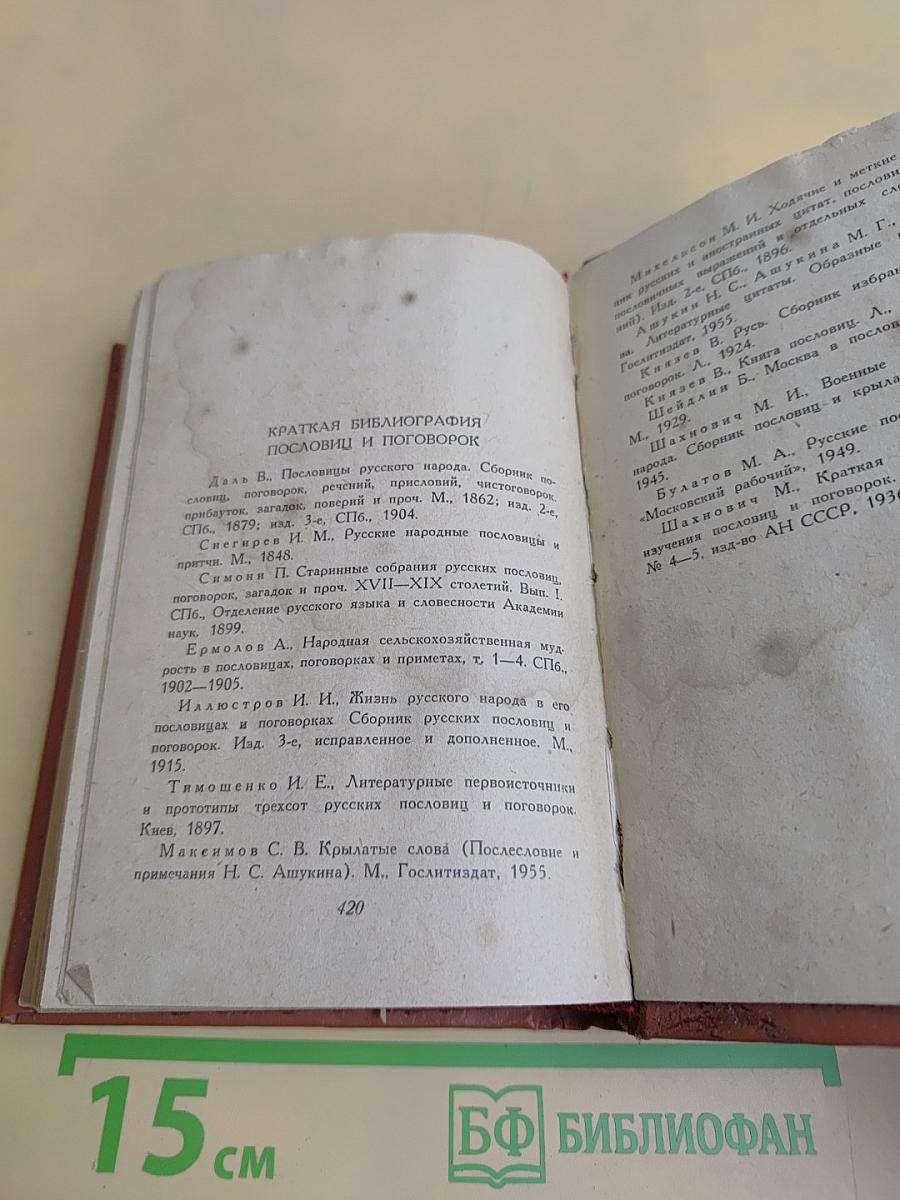 КРАТКАЯ БИБЛИОГРАФИЯ
ПОСЛОВИЦ И ПОГОВОРОК
Даль В., Пословицы русского народа. Сборник по-
словиц, поговорок, речений, присловий, чистоговорок,
прибауток, загадок, поверий и проч. М., 1862; изд. 2-е,
СПб., 1879; изд. 3-е, СПб., 1904.
Снегирев И. М., Русские народные пословицы и
притчи. М., 1848.
Симони П. Старинные собрания русских пословиц,
поговорок, загадок и проч. XVII—XIX столетий. Вып. I.
СПб., Отделение русского языка и словесности Академии
наук, 1899.
Ермолов А., Народная сельскохозяйственная муд-
рость в пословицах, поговорках и приметах, т. 1—4. СПб.,
1902—1905.
Иллюстров И. И., Жизнь русского народа в его
пословицах и поговорках. Сборник русских пословиц и
поговорок. Изд. 3-е, исправленное и дополненное. М.,
1915.
Тимошенко И. Е., Литературные первоисточники
и прототипы трехсот русских пословиц и поговорок.
Киев, 1897.
Максимов С. В. Крылатые слова (Послесловие и
примечания Н. С. Ашукина). М., Гослитиздат, 1955.
420
Михельсон М. И. Ходячие и меткие
ник русских и иностранных цитат, послови
пословичных выражений и отдельных сло
ний). Изд. 2-е, СПб., 1896.
Ашукин Н. С., Ашукина М. Г.,
ва. Литературные цитаты. Образные
Гослитиздат, 1955.
Князев В. Русь. Сборник избран
поговорок. Л., 1924.
Князев В., Книга пословиц. Л.,
Шейдлин Б., Москва в послов
М., 1929.
Шахнович М. И., Военные
народа. Сборник пословиц и крыла
1945.
Булатов М. А., Русские пос
«Московский рабочий», 1949.
Шахнович М., Краткая
изучения пословиц и поговорок.
№ 4—5, изд-во АН СССР, 1936
15 см
БФ БИБЛИОФАН